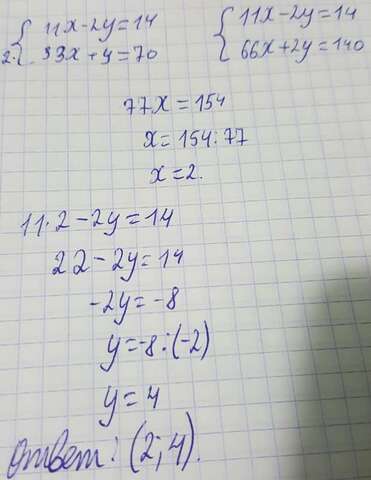 { 11x-2y=14
2· { 33x+y=70
{ 11x-2y=14
{ 66x+2y=140
77x=154
x=154:77
x=2.
11·2-2y=14
22-2y=14
-2y=-8
y=-8:(-2)
y=4
Ответ: (2;4).